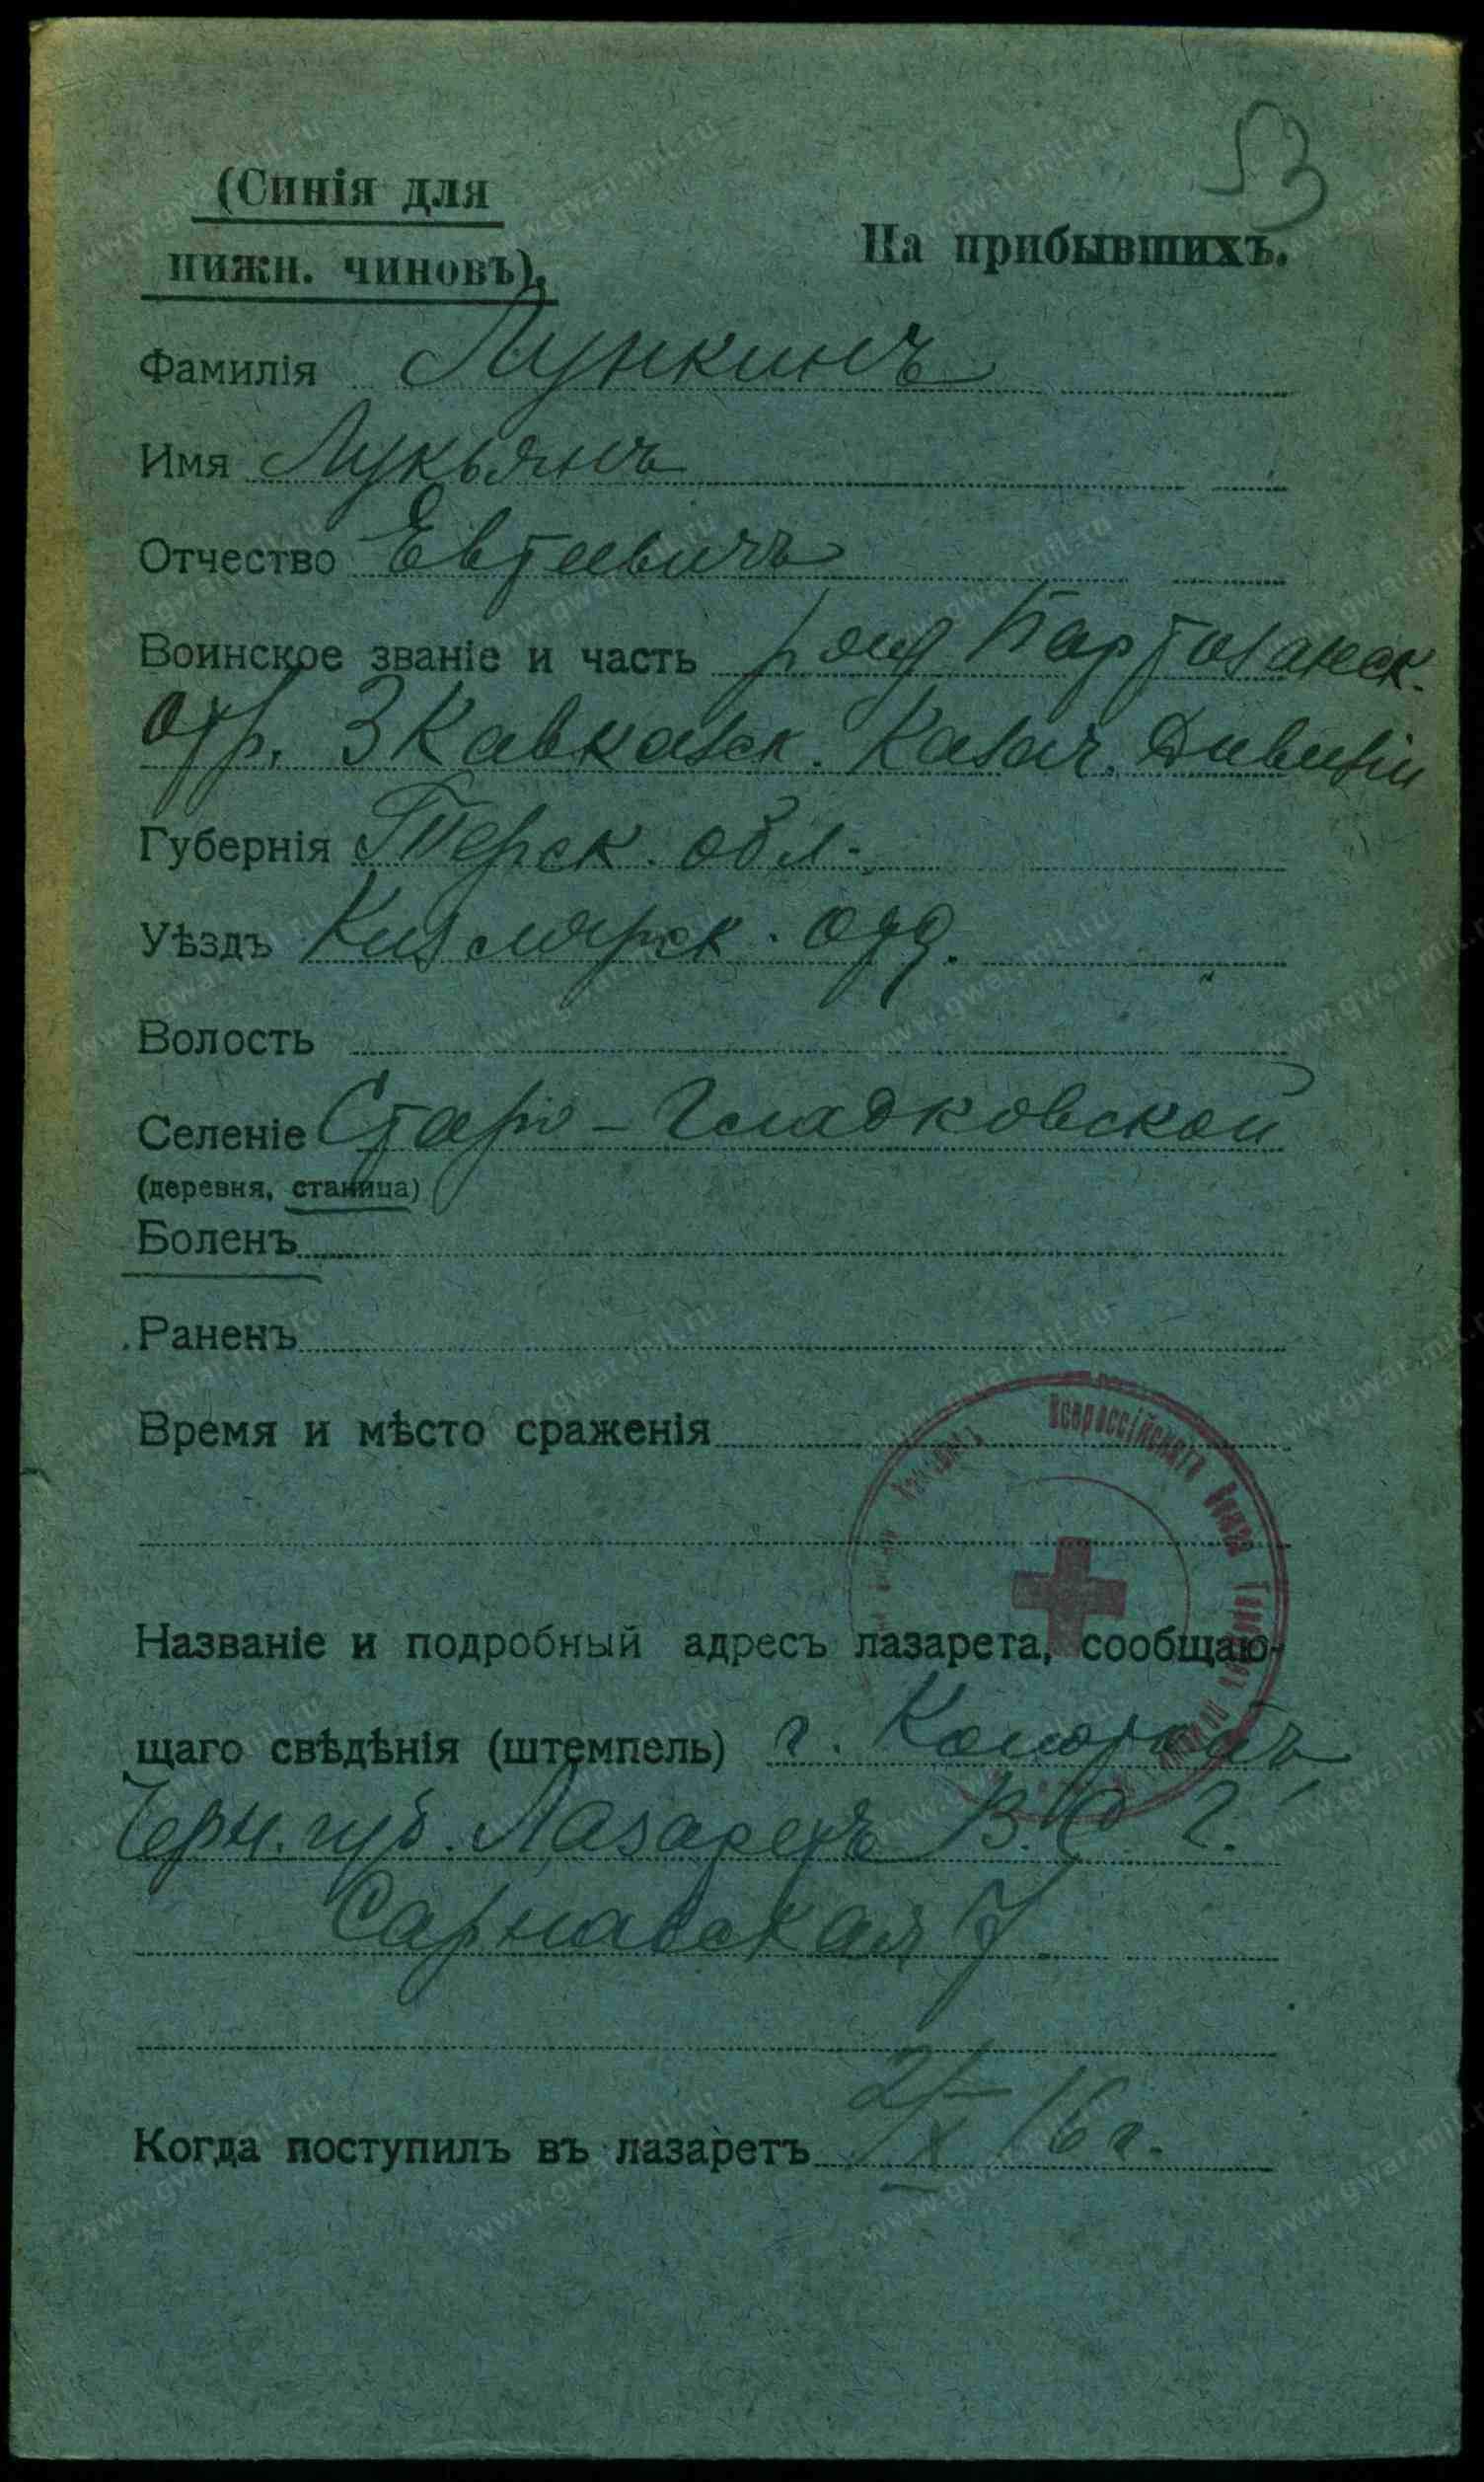 53
(Синія для
нижн. чиновъ).
На прибывшихъ.
Фамилія Лункинъ
Имя Лукьянъ
Отчество Евтеевичъ
Воинское званіе и часть ряд Партизанск.
отр. 3 Кавказск. Казач. Дивизіи
Губернія Терск. обл.
Уѣздъ Кизлярск. отд.
Волость
Селеніе Старо-Гладковской
(деревня, станица)
Боленъ
Раненъ
Время и мѣсто сраженія
Всероссійскаго Союза
Названіе и подробный адресъ лазарета, сообщаю-
щаго свѣдѣнія (штемпель) г. Конотопъ
Черн. губ. Лазаретъ В. С. Г.
7
Когда поступилъ въ лазаретъ 2/X 16 г.
www.gwar.mil.ru